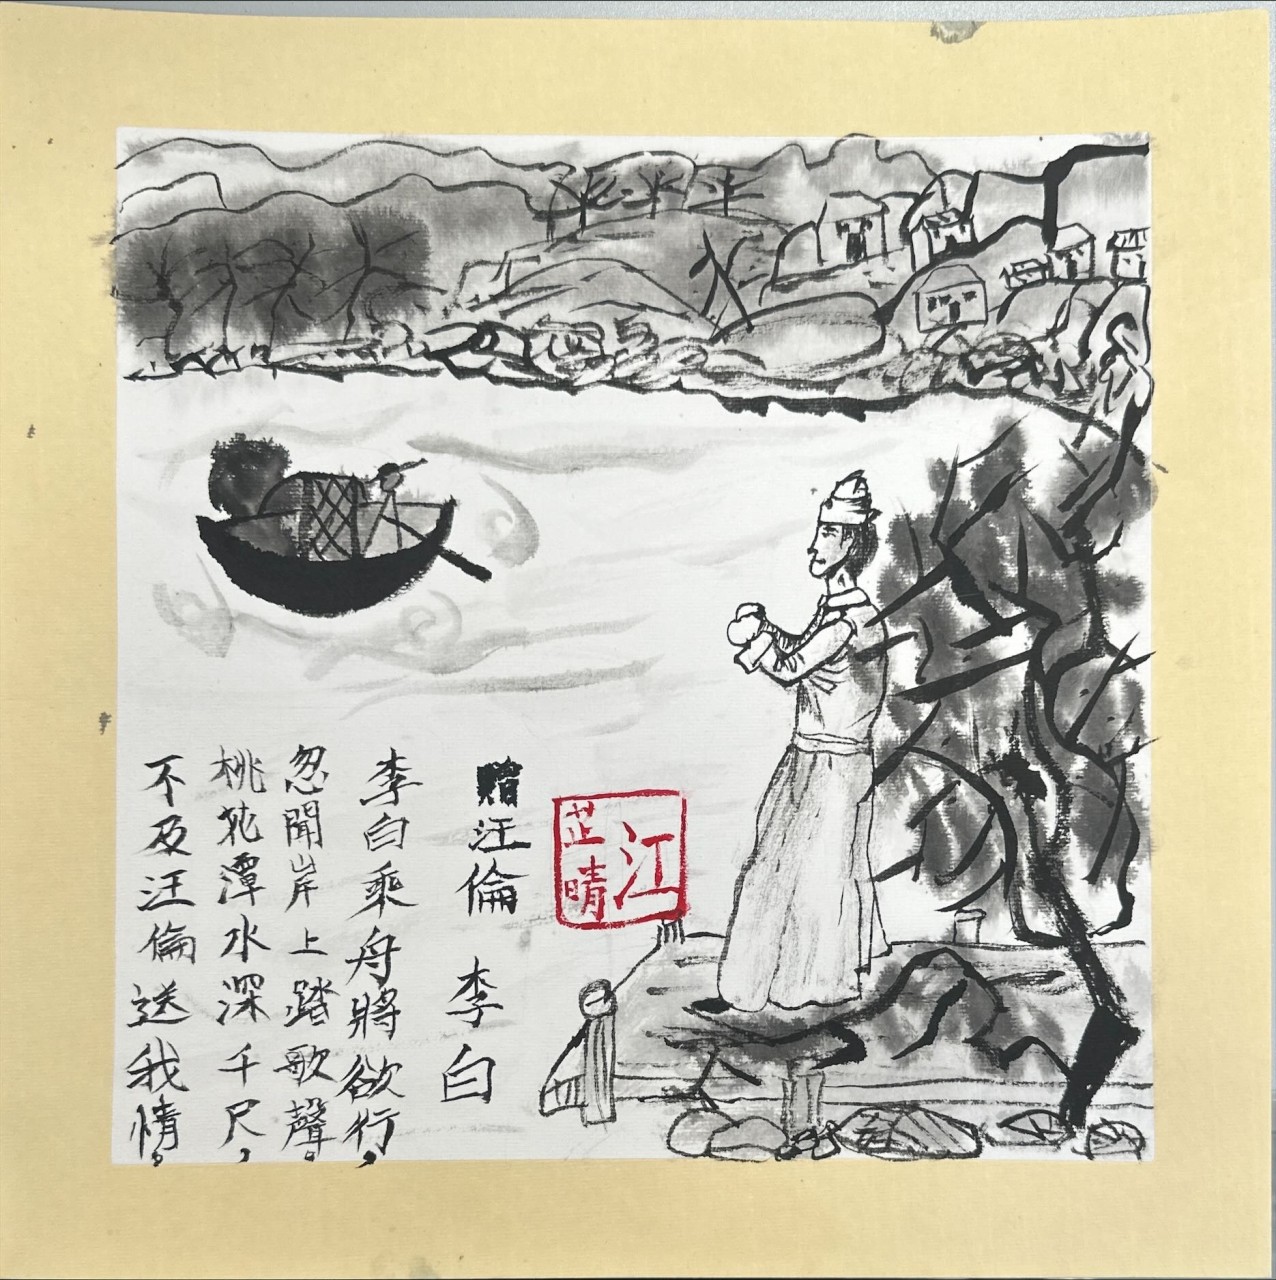 贈汪倫 李白
李白乘舟將欲行，
忽聞岸上踏歌聲。
桃花潭水深千尺，
不及汪倫送我情。
江芷晴